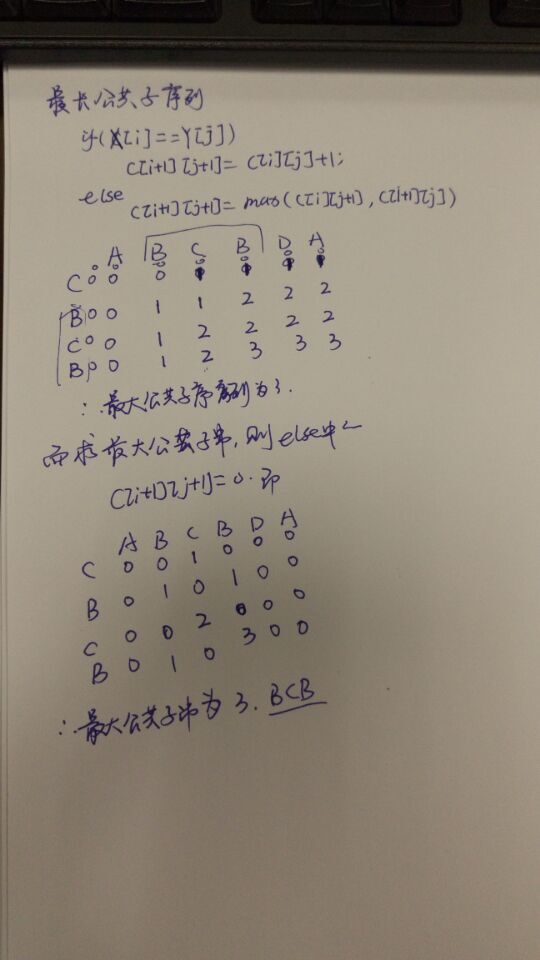 最长公共子序列
if(X[i]==Y[j])
C[i+1][j+1]=C[i][j]+1;
else
C[i+1][j+1]=max(C[i][j+1],C[i+1][j])
A B C B D A
0 0 0
C 0 0
B 0 0 1 1 2 2 2
C 0 0 1 2 2 2 2
B 0 0 1 2 3 3 3
∴最大公共子序列为3.
而求最大公共子串,则else中
C[i+1][j+1]=0.即
A B C B D A
C 0 0 1 0 0 0
B 0 1 0 1 0 0
C 0 0 2 0 0 0
B 0 1 0 3 0 0
∴最大公共子串为3. BCB